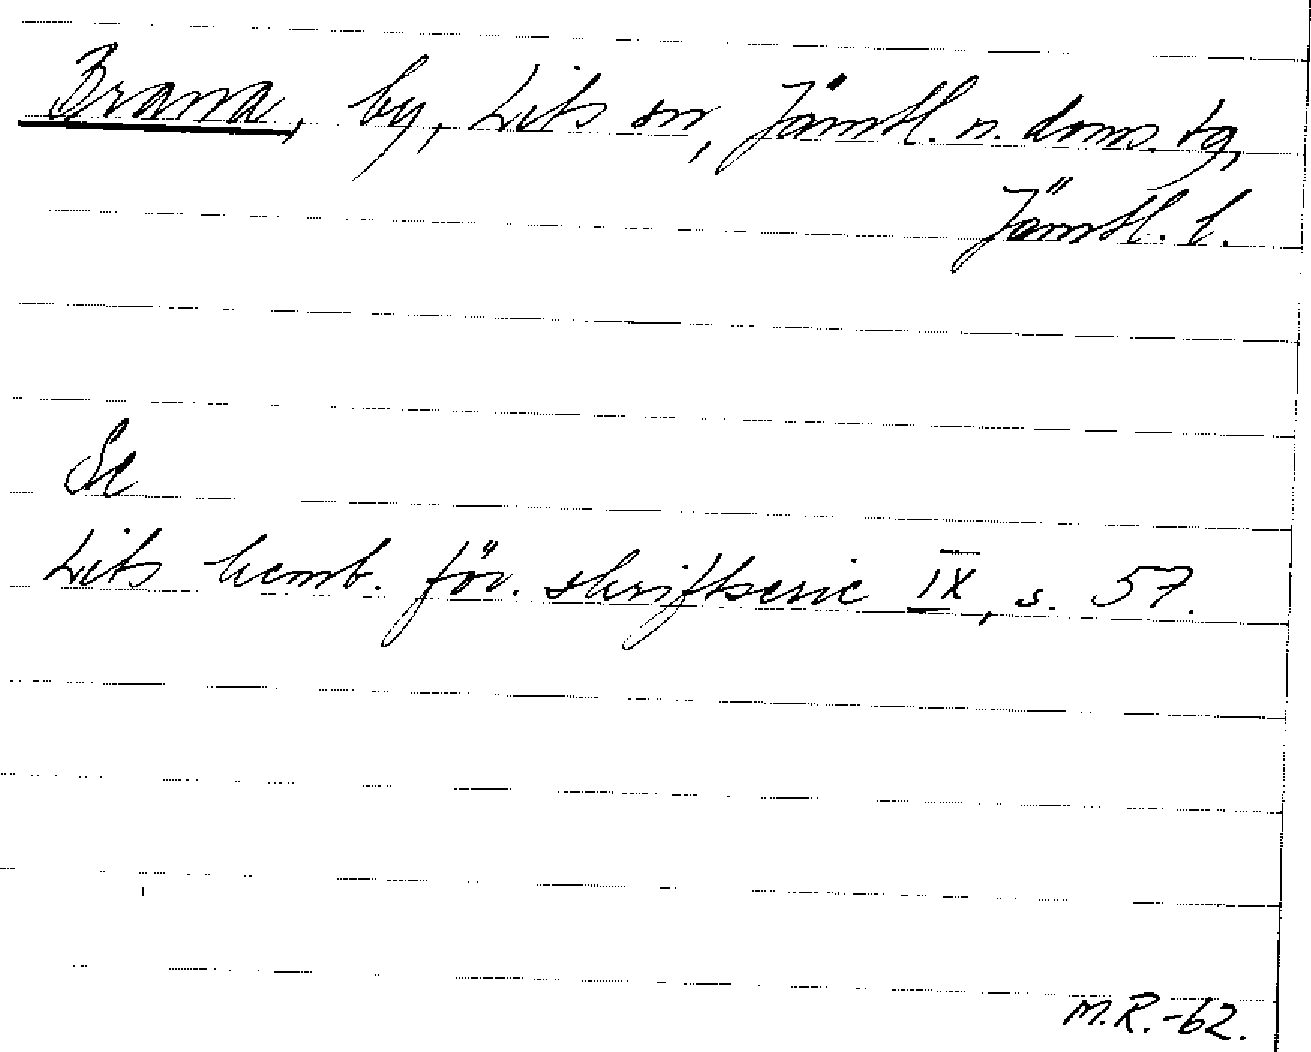 Brana, by, Lits sn, Jämtl. n. doms. tg,
Jämtl. l.
Se
Lits hemb. för. skriftserie IX, s. 57.
M.R.-62.